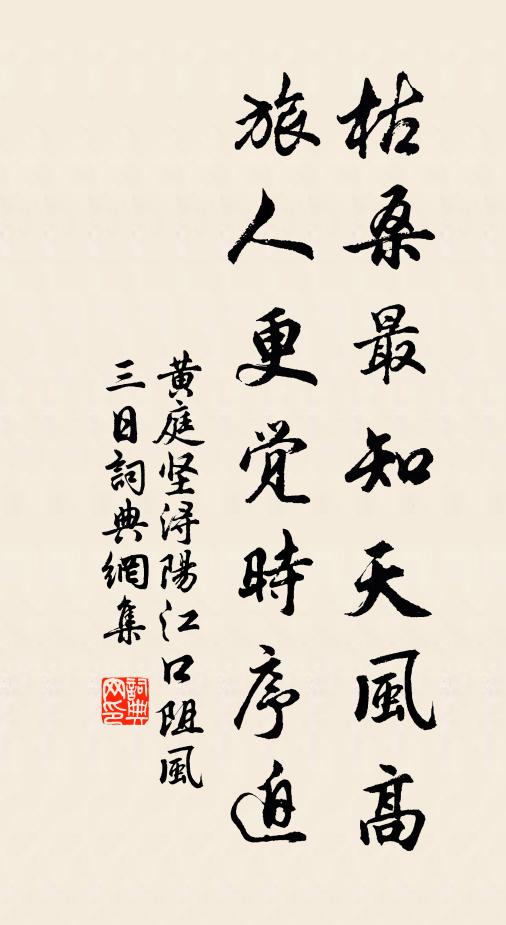 枯桑最知天風高
旅人更觉時序迫
黄庭坚潯陽江口阻風
三日詞典網集
詞典
网印